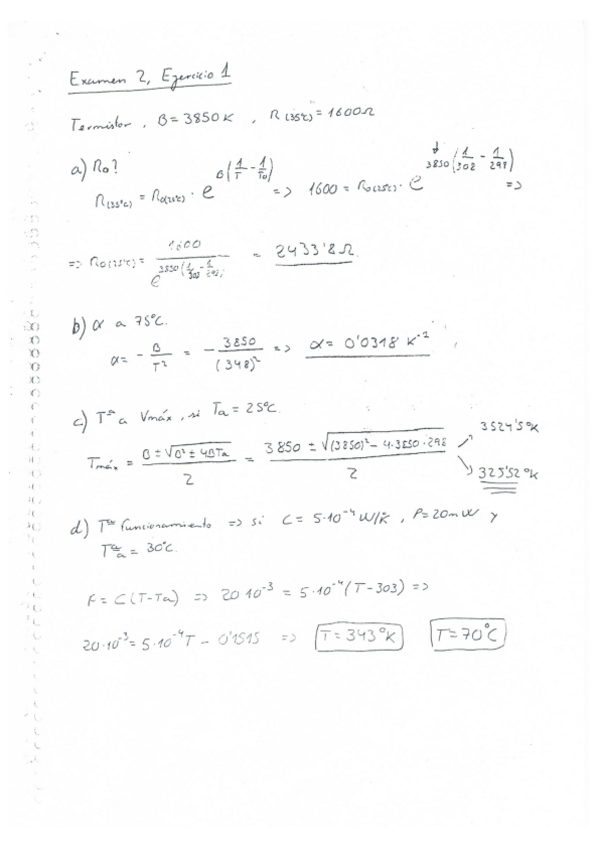 Examen 2, Ejercicio 1
Termistor, B = 3850 K, R(35ºC) = 1600Ω
a) Ro?
R(35ºC) = Ro(25ºC) · e^B(1/T - 1/To) => 1600 = Ro(25ºC) · e^3850(1/308 - 1/298) =>
=> Ro(25ºC) = 1600 / e^3850(1/308 - 1/298) = 2433'8 Ω.
b) α a 75ºC.
α = - B/T² = - 3850/(348)² => α = 0'0318 K⁻¹
c) Tª a Vmáx, si Ta = 25ºC
Tmáx = (B ± √(B² ± 4BTa))/2 = (3850 ± √((3850)² - 4·3850·298))/2
3524'5 ºK
325'52 ºK
d) Tª funcionamiento => si C = 5·10⁻⁴ W/K, P = 20mW y
Tªa = 30ºC.
P = C(T-Ta) => 20·10⁻³ = 5·10⁻⁴(T-303) =>
20·10⁻³ = 5·10⁻⁴T - 0'1515 => T = 343ºK T = 70ºC